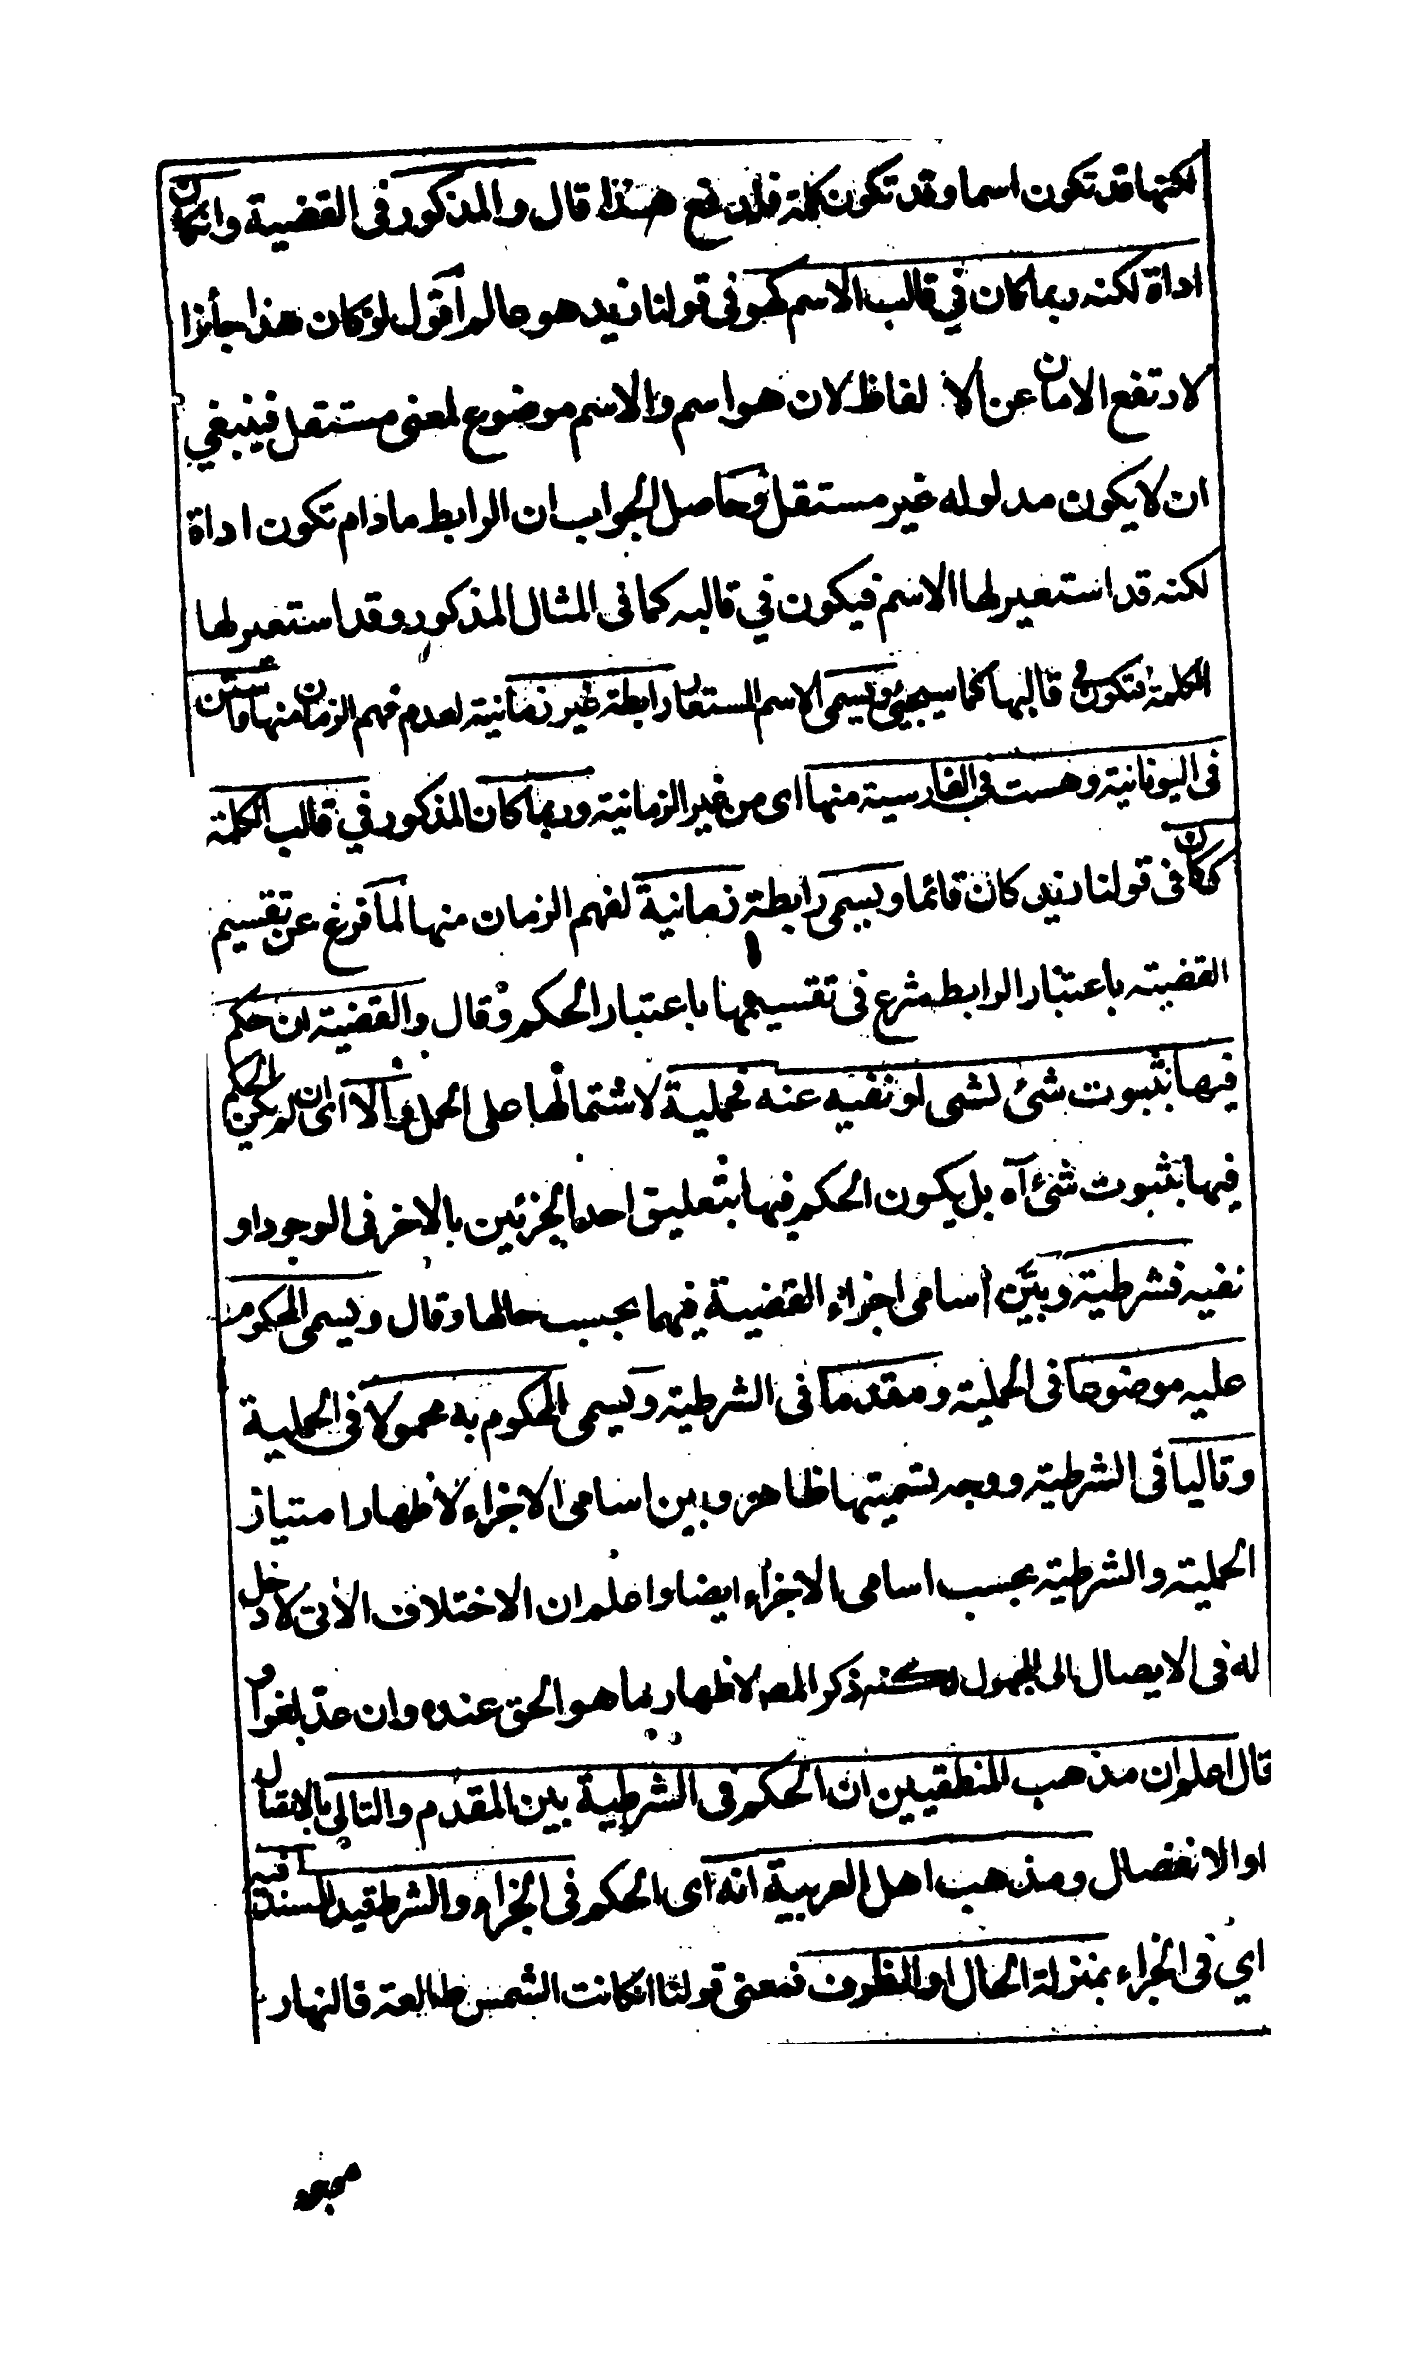 لكنها قد تكون اسما وقد تكون كلمة فلدفع هذا قال والمذكور فى القضية وانكان
اداة لكنه ربما كان في قالب الاسم كهو فى قولنا زيد هو عالم أقول لو كان هذا جائزا
لارتفع الامان عن الا لفاظ لان هو اسم والاسم موضوع لمعنى مستقل فينبغي
ان لا يكون مدلوله غير مستقل وحاصل الجواب ان الرابط مادام تكون اداة
لكنه قد استعير لها الاسم فيكون في قالبه كما فى المثال المذكور وقد استعير لها
الكلمة فتكون في قالبها كما سيجيئ ويسمى الاسم المستعار رابطة غير زمانية لعدم فهم الزمان منها واستن
فى اليونانية وهست في الفارسية منها اى من غير الزمانية وربما كان المذكور في قالب الكلمة
ككان فى قولنا زيد كان قائما ويسمى رابطة زمانية لفهم الزمان منها لما فرغ عن تقسيم
القضية باعتبار الرابط شرع فى تقسيمها باعتبار الحكم وقال والقضية ان حكم
فيها بثبوت شئ لشى او نفيه عنه فحملية لاشتمالها على الحمل والا اى ان لم يكن الحكم
فيها بثبوت شئ آه بل يكون الحكم فيها بتعليق احد الجزئين بالاخر فى الوجود او
نفيه فشرطية وبيّن أسامى اجزاء القضية فيهما بحسب حالها وقال ويسمى المحكوم
عليه موضوعا فى الحملية ومقدما فى الشرطية ويسمى المحكوم به محمولا فى الحملية
وتاليا فى الشرطية ووجه تسميتها ظاهر وبين اسامى الاجزاء لاظهار امتياز
الحملية والشرطية بحسب اسامى الاجزاء ايضا واعلم ان الاختلاف الأتى لا دخل
له فى الايصال الى المجهول لكنه ذكر المصـ لاظهار ما هو الحق عنده وان عدّ لغوا و
قال اعلم ان مذهب المنطقيين ان الحكم فى الشرطية بين المقدم والتالى بالاتصال
او الانفصال ومذهب اهل العربية انه اى الحكم فى الجزاء والشرط قيد للمسند فيه
اي فى الجزاء بمنزلة الحال او الظرف فمعنى قولنا انكانت الشمس طالعة فالنهار
موجود